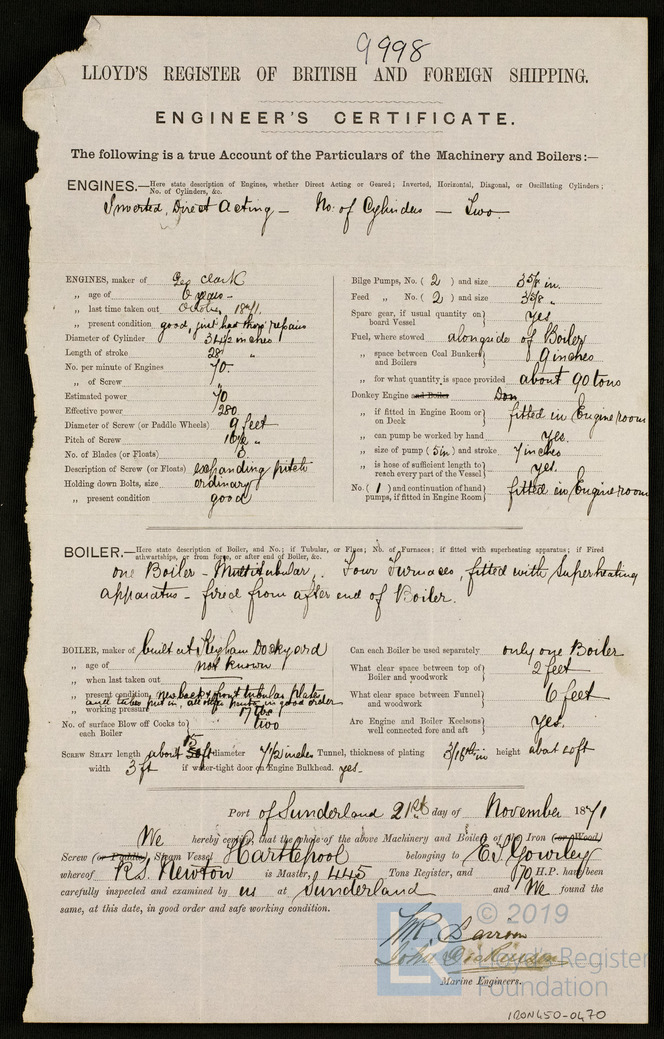 9998
LLOYD'S REGISTER OF BRITISH AND FOREIGN SHIPPING.
ENGINEER'S CERTIFICATE.
The following is a true Account of the Particulars of the Machinery and Boilers:—
ENGINES.—Here state description of Engines, whether Direct Acting or Geared; Inverted, Horizontal, Diagonal, or Oscillating Cylinders;
No. of Cylinders, &c.
Inverted, Direct Acting — No. of Cylinders — Two
ENGINES, maker of Geo Clark
„ age of 6 years –
„ last time taken out October 1871.
„ present condition good, just had thoro' repairs
Diameter of Cylinder 34 1/2 inches
Length of stroke 28 "
No. per minute of Engines 70.
„ of Screw "
Estimated power 70
Effective power 280
Diameter of Screw (or Paddle Wheels) 9 feet
Pitch of Screw 16 1/2 "
No. of Blades (or Floats) 3
Description of Screw (or Floats) expanding pitch
Holding down Bolts, size ordinary
„ present condition good
Bilge Pumps, No. ( 2 ) and size 3 5/8 in.
Feed „ No. ( 2 ) and size 3 5/8 "
Spare gear, if usual quantity on board Vessel yes
Fuel, where stowed alongside of Boiler
„ space between Coal Bunkers and Boilers 9 inches
„ for what quantity is space provided about 90 tons
Donkey Engine and Boiler
„ if fitted in Engine Room or on Deck fitted in Engine room
„ can pump be worked by hand yes.
„ size of pump ( 5 in ) and stroke 7 inches
„ is hose of sufficient length to reach every part of the Vessel yes.
No. ( 1 ) and continuation of hand pumps, if fitted in Engine Room fitted in Engine room
BOILER.—Here state description of Boiler, and No.; if Tubular, or Flues; No. of Furnaces; if fitted with superheating apparatus; if Fired
athwartships, or from fore, or after end of Boiler, &c.
one Boiler – Multitubular. Four Furnaces, fitted with Superheating
apparatus – fired from after end of Boiler.
BOILER, maker of built at Keyham Dockyard
„ age of not known
„ when last taken out
„ present condition new back & front tubular plates
and tubes put in, all other parts in good order
„ working pressure 17 lbs
No. of surface Blow off Cocks to each Boiler two
Can each Boiler be used separately only one Boiler
What clear space between top of Boiler and woodwork 2 feet
What clear space between Funnel and woodwork 6 feet
Are Engine and Boiler Keelsons well connected fore and aft yes.
SCREW SHAFT length about ft diameter 7 1/2 inches Tunnel, thickness of plating 3/16th in height about ft
width 3 ft if water-tight door on Engine Bulkhead. yes –
Port of Sunderland 21st day of November 1871
We hereby certify, that the whole of the above Machinery and Boiler of the Iron (or Wood)
Screw (or Paddle) Steam Vessel Hartlepool belonging to E.T. Gourley
whereof R.S. Newton is Master, 445 Tons Register, and 70 H.P. have been
carefully inspected and examined by us at Sunderland and We found the
same, at this date, in good order and safe working condition.
John Dickinson
Marine Engineers.
LR
© 2019
Lloyd's Register
Foundation
IRON450-0470